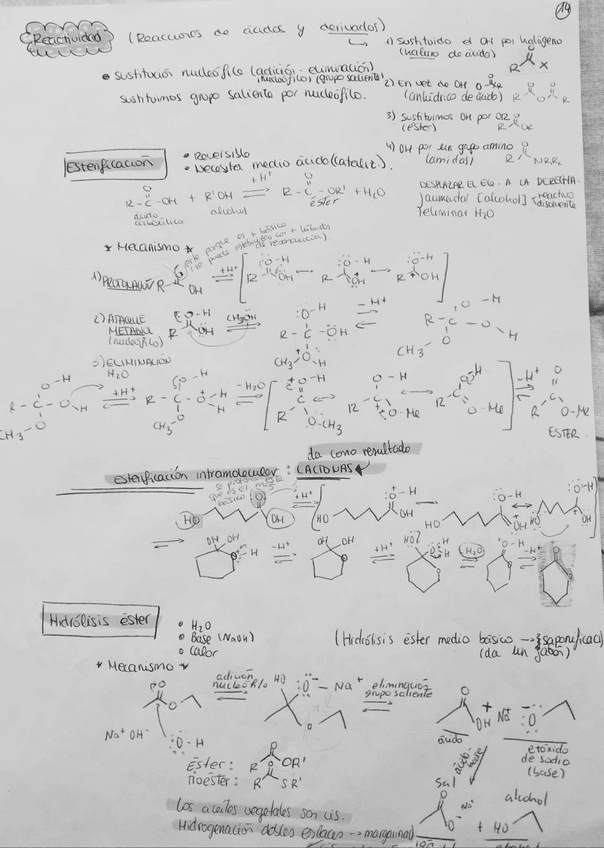 14
Reactividad (Reacciones de ácidos y derivados)
1) Sustituido el OH por halógeno
(haluro de ácido)
• Sustitución nucleófilo (adición-eliminación)
(nucleófilo) (grupo saliente)
sustituimos grupo saliente por nucleófilo.
2) En vez de OH
(anhídrido de ácido)
3) Sustituimos OH por OR
(éster)
4) OH por un grupo amino
(amidas)
Esterificación
• Reversible
• Necesita medio ácido (cataliz.)
R-C-OH + R'OH ⇌ +H⁺ R-C-OR' + H₂O
ácido carboxílico alcohol éster
DESPLAZAR EL EQ. A LA DERECHA
aumentar [alcohol] reactivo disolvente
eliminar H₂O
* Mecanismo *
este porque es + básico
(se puede estabilizar con + híbridos
de resonancia).
1) PROTONACIÓN +H⁺
2) ATAQUE
METANOL
(nucleófilo)
CH₃OH -H⁺
3) ELIMINACIÓN
H₂O
+H⁺ -H₂O -H⁺
ESTER
da como resultado
Esterificación intramolecular: LACTONAS
+H⁺
-H⁺ +H⁺ H₂O -H⁺
Hidrólisis éster
• H₂O
• Base (NaOH)
• Calor
(Hidrólisis éster medio básico → saponificaci
(da un jabón)
* Mecanismo *
adición
nucleófilo
eliminación
grupo saliente
Na⁺ OH⁻
ácido
etóxido
de sodio
(base)
Éster: OR'
Tioéster: SR'
ácido base
sal alcohol
Los aceites vegetales son cis.
Hidrogenación dobles enlaces → margarinas